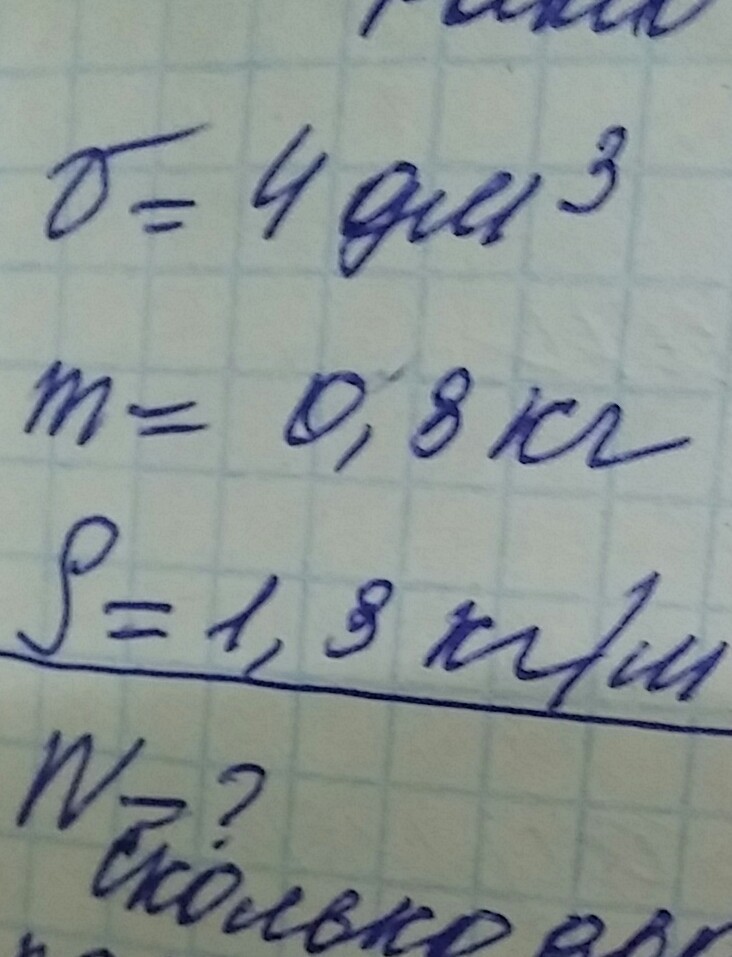 V = 4 дм³
m = 0,8 кг
ρ = 1,3 кг/м
N - ?
сколько